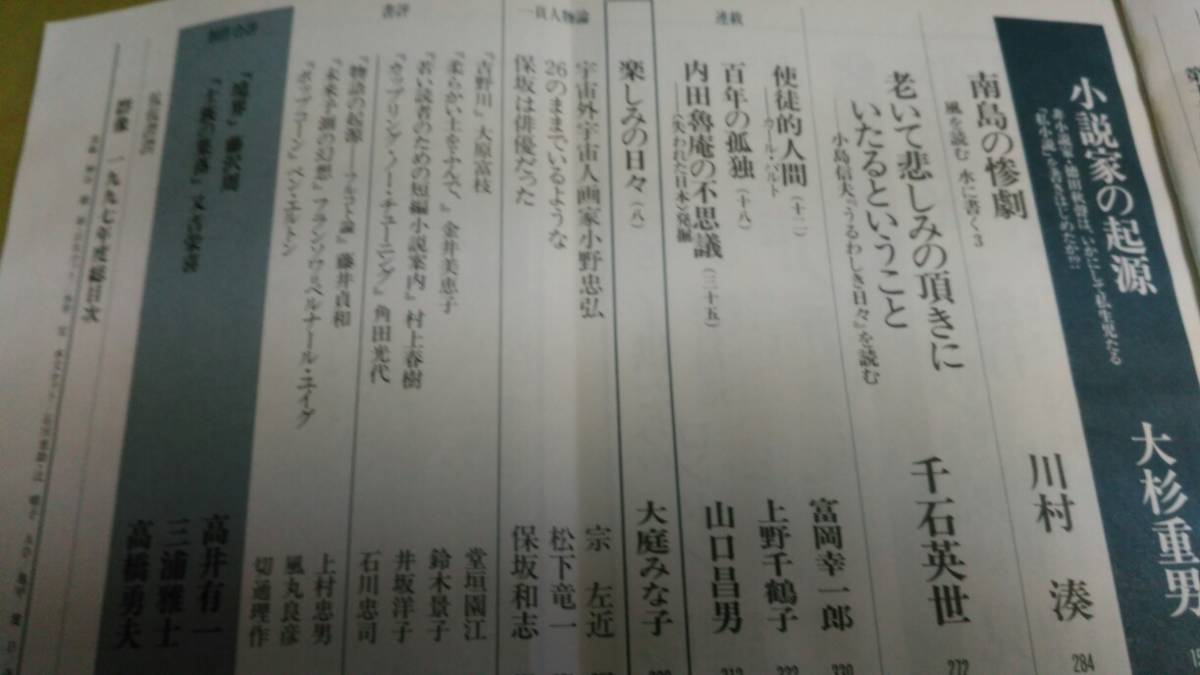 小説家の起源
非小説家・徳田秋聲は、いかにして私生児たる
『私小説』を書きはじめたか?!
大杉重男
南島の惨劇
風を読む 水に書く3
川村 湊
284
老いて悲しみの頂きに
いたるということ
小島信夫『うるわしき日々』を読む
千石英世
272
連載
使徒的人間(十二)
カール・バルト
富岡幸一郎
百年の孤独(十八)
上野千鶴子
内田魯庵の不思議(三十五)
〈失われた日本〉発掘
山口昌男
楽しみの日々(八)
大庭みな子
一頁人物論
宇宙外宇宙人画家小野忠弘
宗 左近
26のままでいるような
松下竜一
保坂は俳優だった
保坂和志
書評
『吉野川』大原富枝
堂垣園江
『柔らかい土をふんで、』金井美恵子
鈴木景子
『若い読者のための短編小説案内』村上春樹
井坂洋子
『カップリング・ノー・チューニング』角田光代
石川忠司
『物語の起源――フルコト論』藤井貞和
上村忠男
『未来子猫の幻想』フランソワ・ベルナール・ユイグ
風丸良彦
『ポップコーン』ベン・エルトン
切通理作
創作合評
『境界』藤沢周
『士族の集落』又吉栄喜
高井有一
三浦雅士
高橋勇夫
群像 一九九七年度総目次